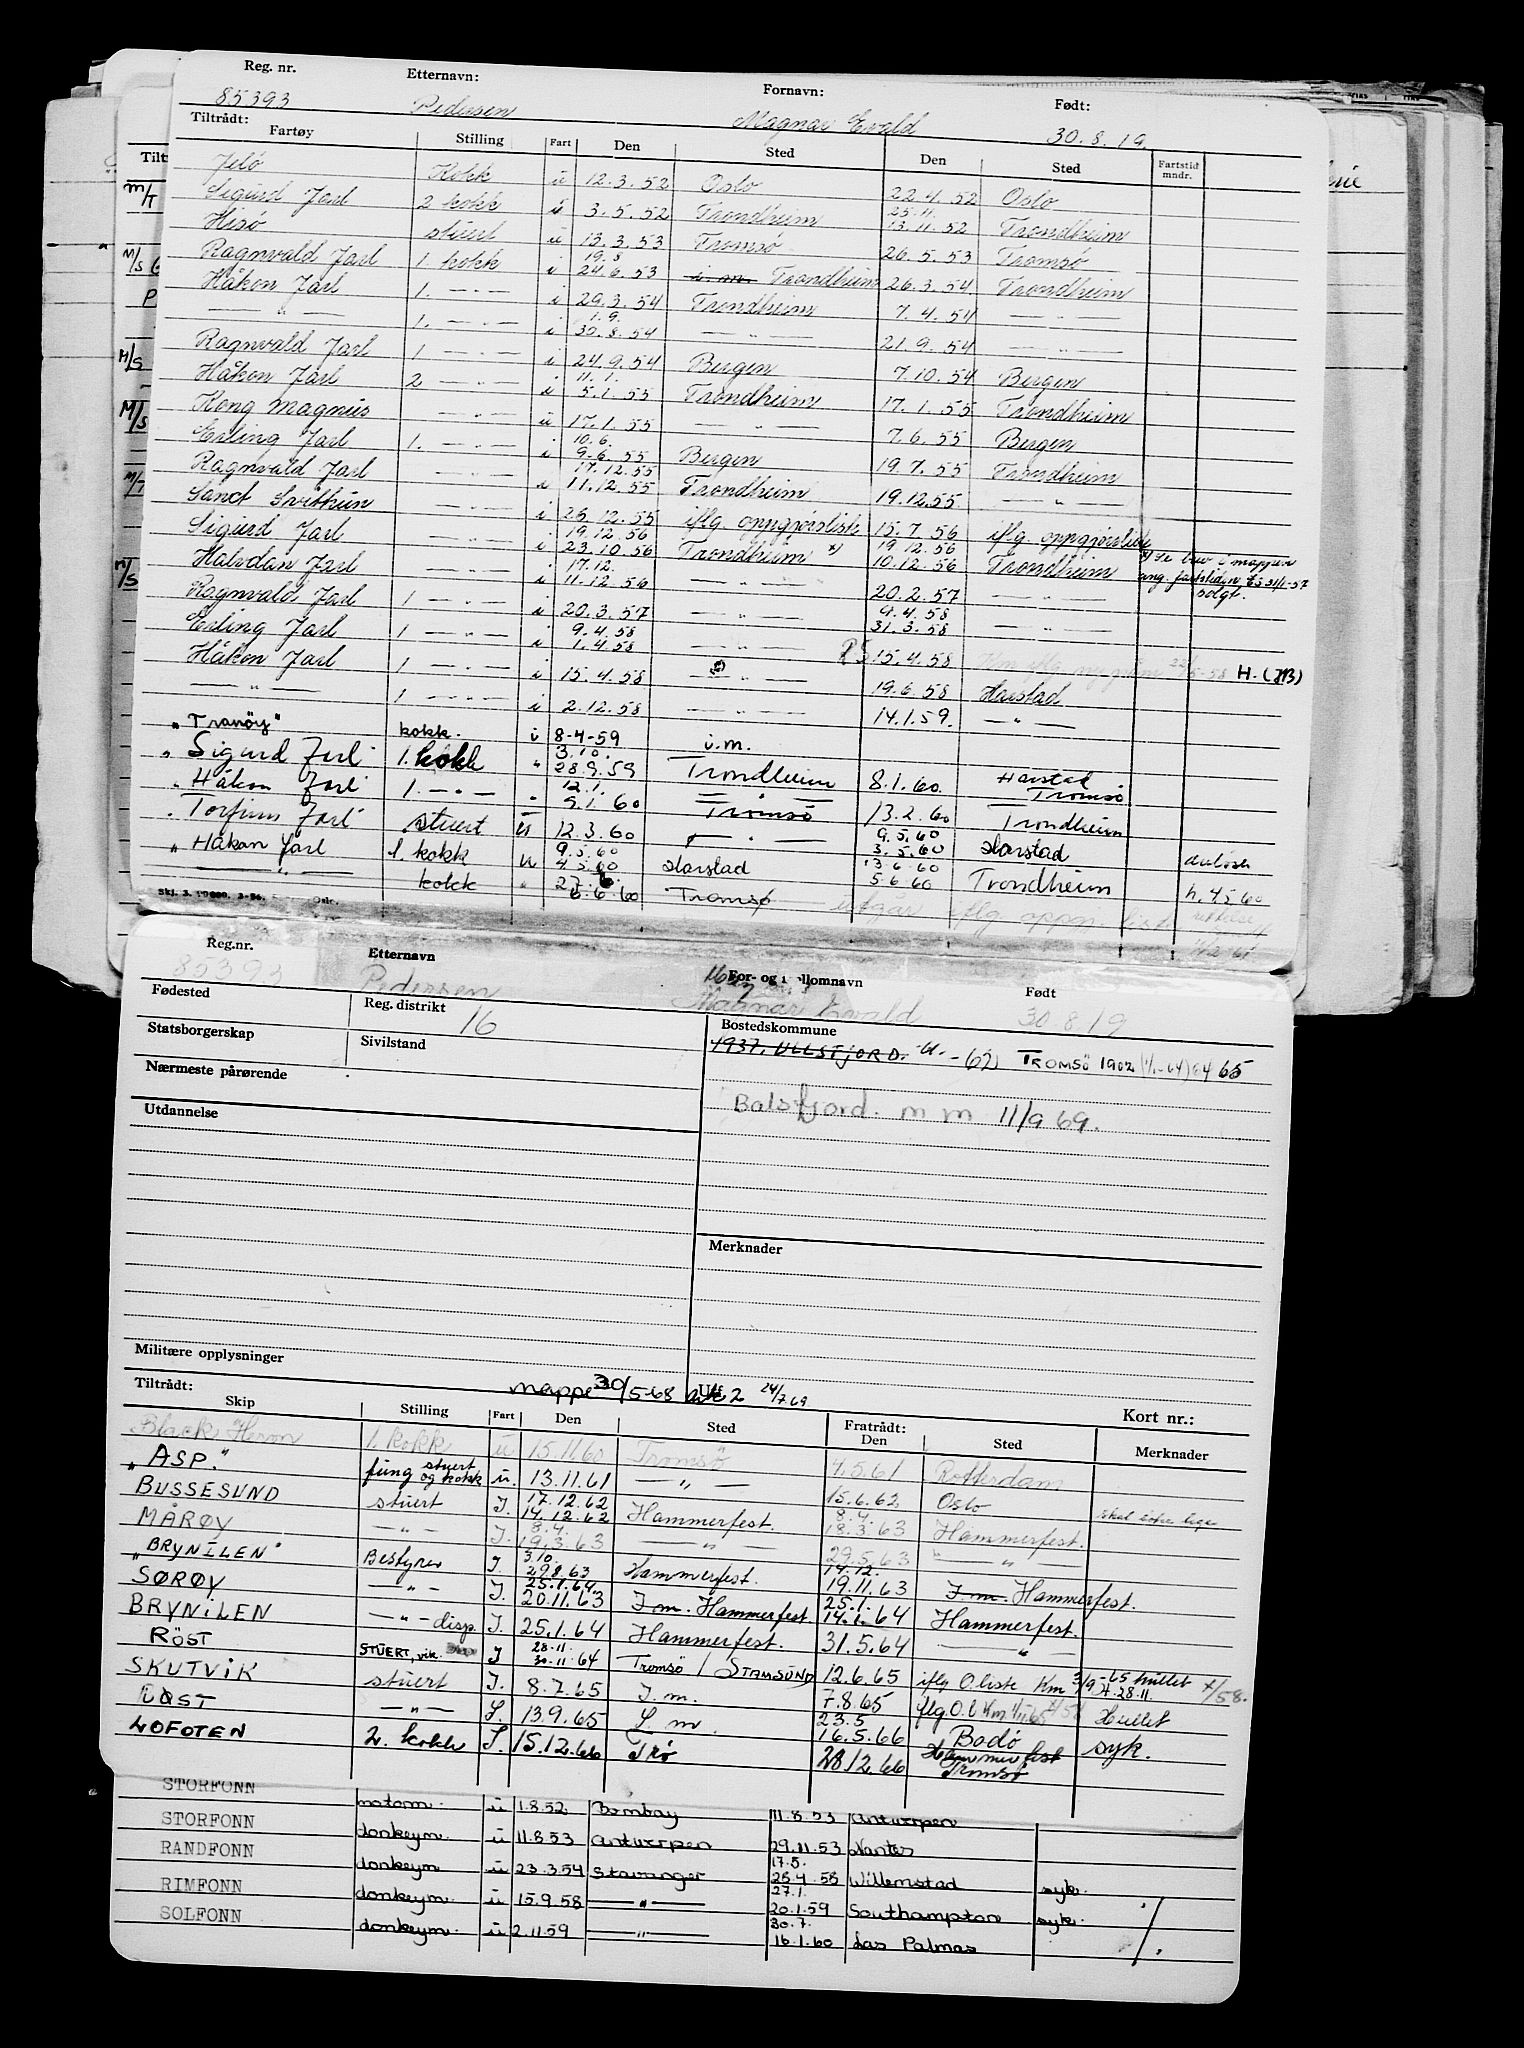 Reg. nr. Etternavn: Fornavn: Født:
85393 Pedersen Magnar Evald 30.8.19.
Tiltrådt:
Fartøy Stilling Fart Den Sted Den Sted Fartstid mndr.
Jelö Kokk u 12.3.52 Oslo 22.4.52 Oslo
Sigurd Jarl 2 kokk i 3.5.52 Trondheim 25.11. 13.11.52 Trondheim
Hisö stuert u 13.3.53 Tromsö 26.5.53 Tromsö
Ragnvald Jarl 1. kokk i 19.8 24.6.53 i.m. Trondheim 26.3.54 Trondheim
Håkon Jarl 1. — " — i 29.3.54 Trondheim 7.4.54 — " —
— " — 1. — " — i 1.9. 30.8.54 — " — 21.9.54 — " —
Ragnvald Jarl 1 — " — i 24.9.54 Bergen 7.10.54 Bergen
Håkon Jarl 2 — " — i 11.1. 5.1.55 Trondheim 17.1.55 Trondheim
Kong Magnus — " — u 17.1.55 — " — 7.6.55 Bergen
Erling Jarl 1. — " — i 10.6. 9.6.55 Bergen 19.7.55 Trondheim
Ragnvald Jarl — " — i 17.12.55 11.12.55 Trondheim 19.12.55 — " —
Sanct Svithun — " — i 26.12.55 iflg oppgjørslisk 15.7.56 iflg. oppgjørslisk
Sigurd Jarl — " — i 19.12.56 23.10.56 Trondheim x) 19.12.56 10.12.56 Trondheim x) Se brev i mappen
Halvdan Jarl — " — i 17.12. 11.12.56 — " — 20.2.57 — " — ang. fartstiden 31/1-57 solgt.
Ragnvald Jarl 1 — " — i 20.3.57 — " — 9.4.58 31.3.58 — " —
Erling Jarl 1 — " — i 9.4.58 1.4.58 — " — 15.4.58 H. (JB)
Håkon Jarl 1 — " — i 15.4.58 — " — 19.6.58 Harstad
— " — 1 — " — i 2.12.58 — " — 14.1.59. — " —
"Tranöy" kokk. i 8-4-59 i.m.
" Sigurd Jarl 1. kokk " 3.10. 28.9.59 Trondheim 8.1.60. Harstad Tromsö
" Håkon Jarl 1. — " — " 12.1. 9.1.60 Tromsö 13.2.60 Trondheim
" Torfinn Jarl stuert 12.3.60 — " — 9.5.60 3.5.60 Harstad
" Håkon Jarl 1. kokk 9.5.60 4.5.60 Harstad 13.6.60 5.6.60 Trondheim
— " — kokk " 27.6. 6.6.60 Tromsø utgår iflg oppgj. h. 4.5.60
Reg.nr. Etternavn For- og mellomnavn Født
85393 Pedersen Magnar Evald 30.8.19
Fødested Reg. distrikt 16 Bostedskommune
Statsborgerskap Sivilstand 1937. ULLSTJORD. -u. -62) TROMSÖ 1902 (1/1-64) 64 65
Nærmeste pårørende
Utdannelse Balsfjord. m m 11/9 69.
Merknader
Militære opplysninger
Tiltrådt: mappe 30/5-68 ark 2 24/7 69 Kort nr.:
Skip Stilling Fart Den Sted Fratrådt: Den Sted Merknader
Black Heron 1. kokk u 15.11.60 Tromsö 4.5.61 Rotterdam
"ASP." fung stuert og kokk u. 13.11.61 — " — 15.6.62 Oslo
BUSSESUND stuert I. 17.12.62 14.12.62 Hammerfest. 8.4. 18.3.63 Hammerfest.
MÅRØY — " — I. 8.4. 19.3.63 — " — 29.5.63 — " —
"BRYNILEN" Bestyrer I. 3.10. 29.8.63 Hammerfest. 14.12. 19.11.63 I.m. Hammerfest.
SØRØY — " — I. 25.1.64. 20.11.63 I.m. Hammerfest. 25.1. 14.1.64 Hammerfest.
BRYNILEN — " — disp. I. 25.1.64 Hammerfest. 31.5.64 — " —
RÖST STUERT, vik. I 28-11- 30-11-64 Tromsø / STAMSUND 12.6.65 iflg O.liste Km 3/9-65 hullet x/58.
SKUTVIK stuert I. 8.7.65 I.m. 7.8.65 iflg O.l Hullet
RÖST — " — I. 13.9.65 I.m. 23.5 16.5.66 Bodø syk.
LOFOTEN 2. kokk I. 15.12.66 Trø 28.12.66 Hammerfest Tromsö
STORFONN motorm. u 1.8.52 Bombay 11.8.53 Antwerpen
STORFONN donkeym. u 11.8.53 Antwerpen 29.11.53 Nantes
RANDFONN donkeym u 23.3.54 Stavanger 17.5. 28.4.58 Willemstad syk.
RIMFONN donkeym. u 15.9.58 — " — 27.1. 20.1.59 Southampton syk.
SOLFONN donkeym. u 2.11.59 — " — 30.7. 16.1.60 Las Palmas